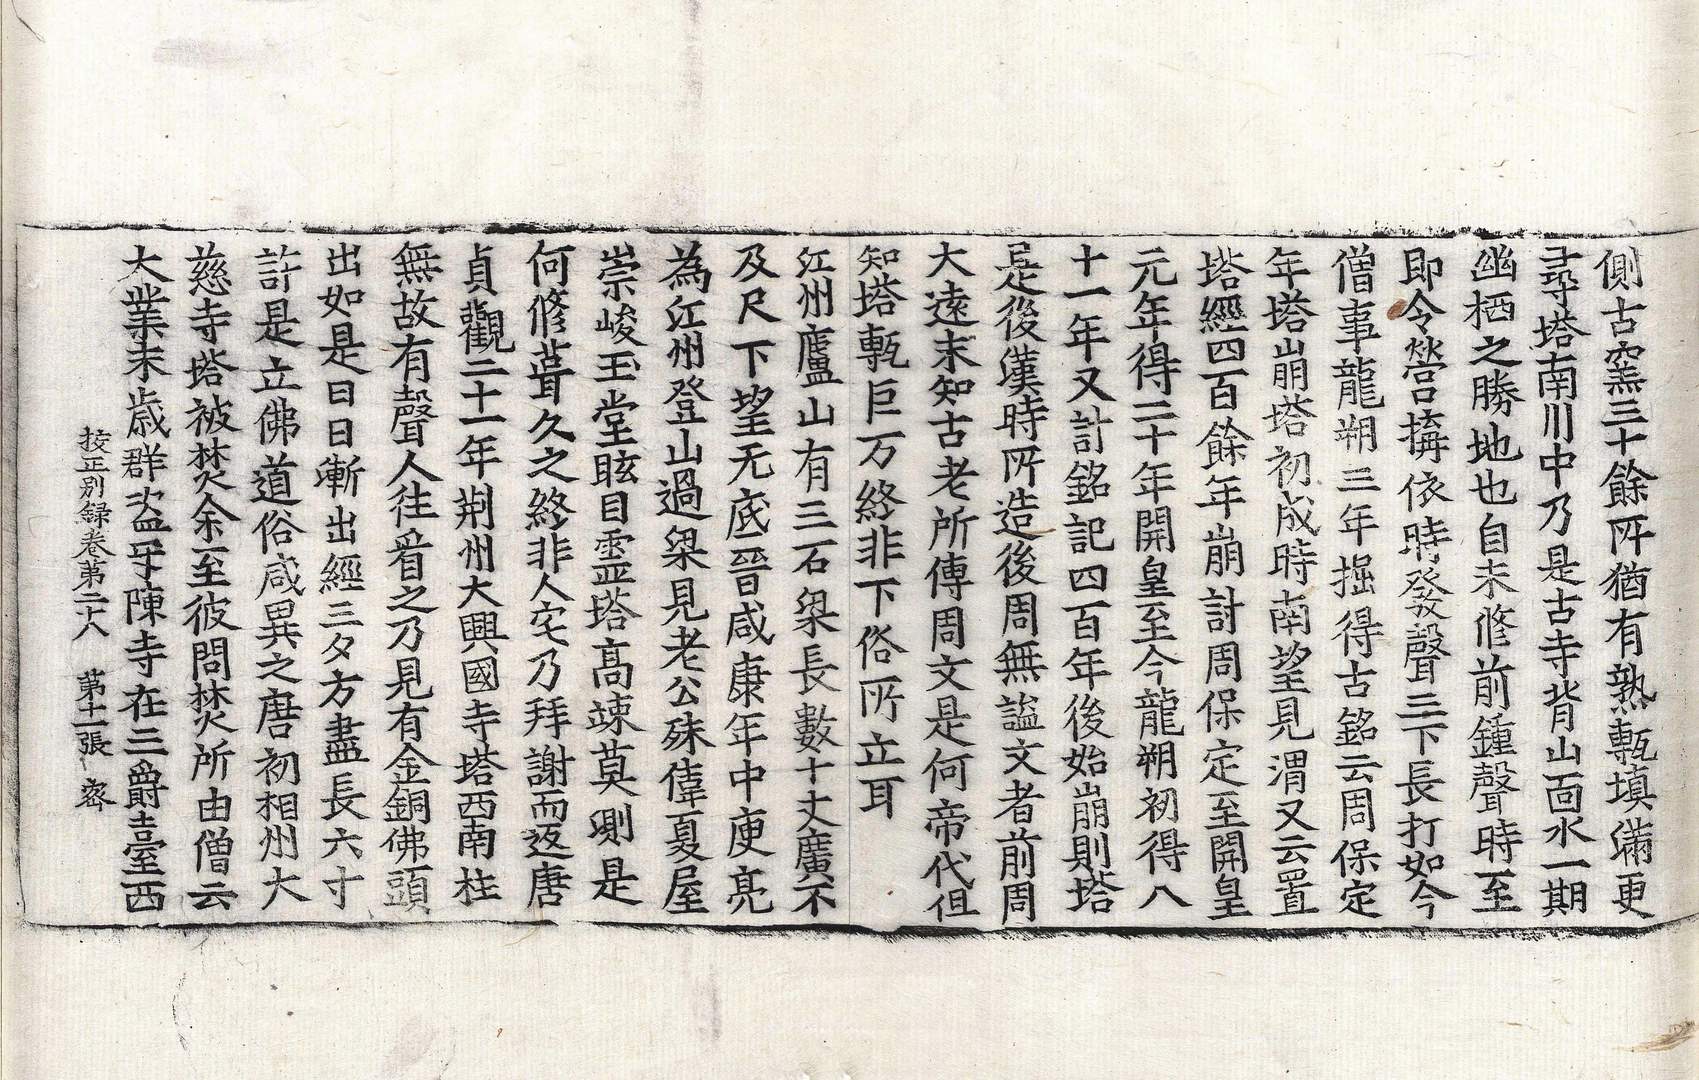 側古窯三十餘所猶有熟甎填滿更
尋塔南川中乃是古寺背山面水一期
幽栖之勝地也自未修前鍾聲時至
即令營搆依時發聲三下長打如今
僧事龍朔三年掘得古銘云周保定
年塔崩塔初成時南望見渭又云置
塔經四百餘年崩計周保定至開皇
元年得二十年開皇至今龍朔初得八
十一年又計銘記四百年後始崩則塔
是後漢時所造後周無謚文者前周
大遠未知古老所傳周文是何帝代但
知塔甎巨万終非下俗所立耳
江州廬山有三石梁長數十丈廣不
及尺下望无底晉咸康年中庾亮
為江州登山過梁見老公殊偉夏屋
崇峻玉堂眩目靈塔高竦莫測是
何修葺久之終非人宅乃拜謝而返唐
貞觀二十一年荊州大興國寺塔西南柱
無故有聲人往看之乃見有金銅佛頭
出如是日日漸出經三夕方盡長六寸
許是立佛道俗咸異之唐初相州大
慈寺塔被焚余至彼問焚所由僧云
大業末歲群盜牙陳寺在三爵臺西
挍正別録卷第二十八　第十一張　密